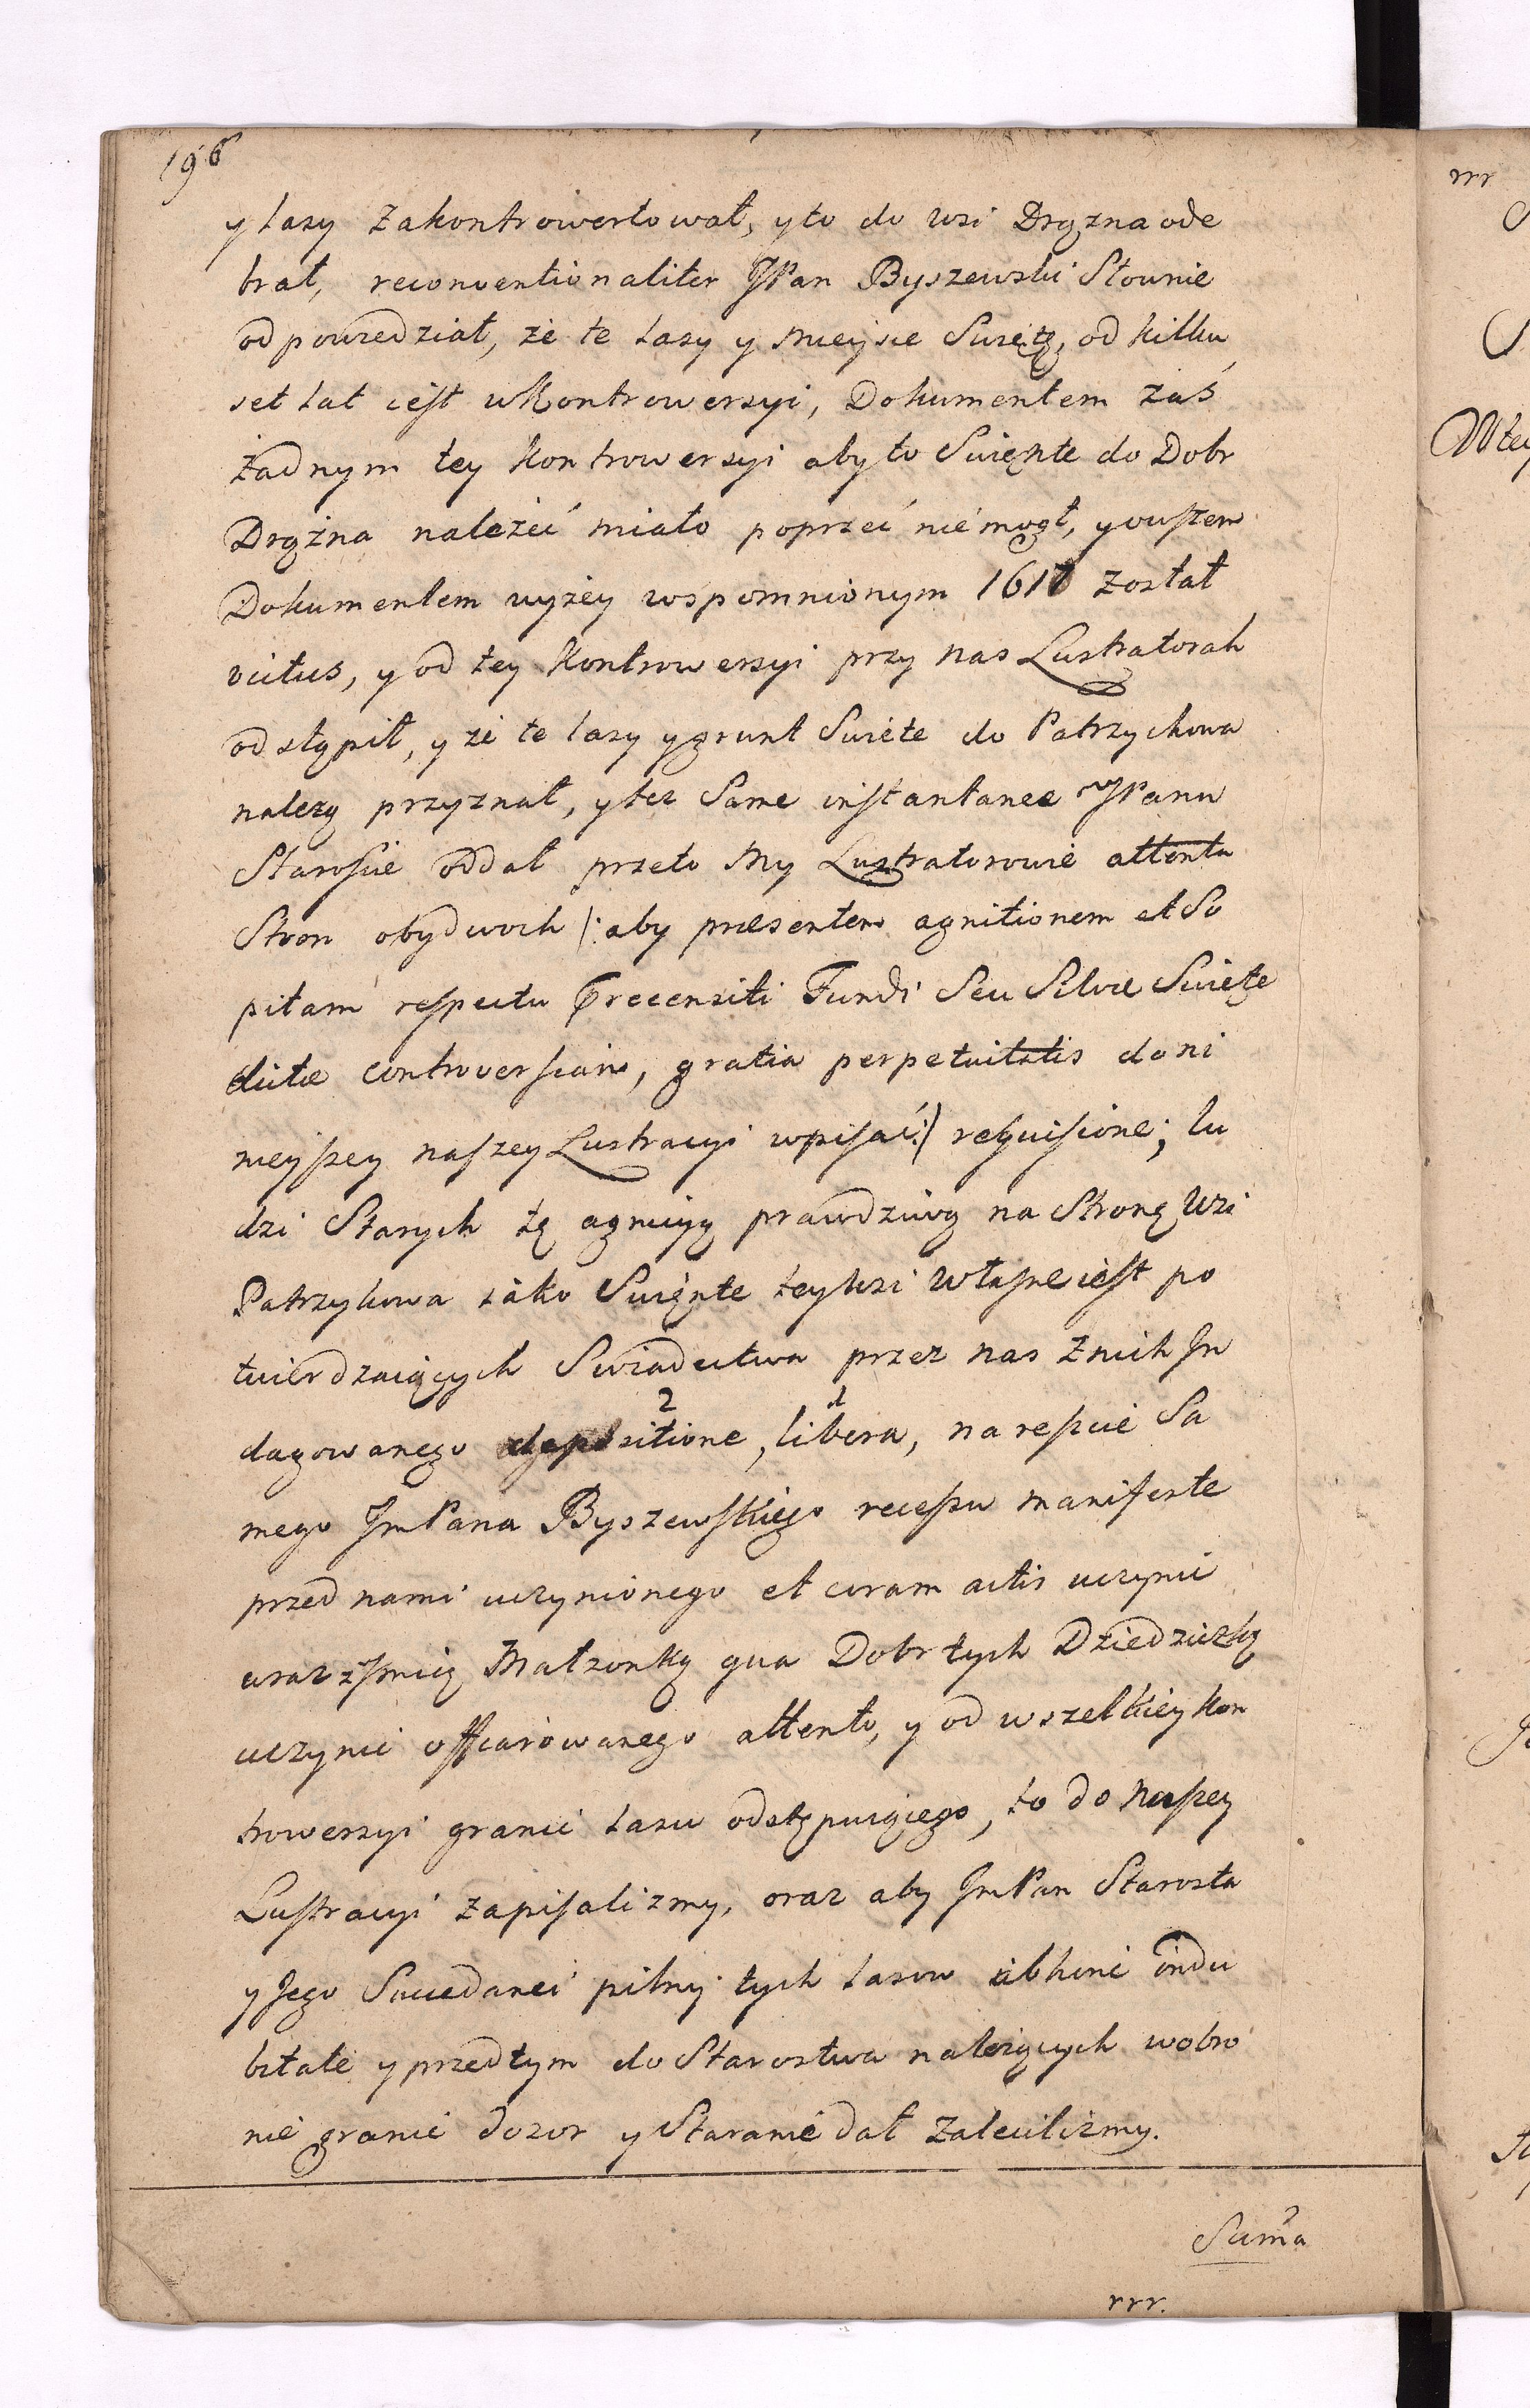 196
y Lasy Zakontrowertował, y to do wsi Drązna ode
brał, reconventionaliter JPan Byszewski Słownie
odpowiedział, że te Lasy y Mieysce Swiętę, od kilku
set Lat iest w Kontrowersyi, Dokumentem zaś
żadnym tey Kontrowersyi aby to Swiętne do Dobr
Drążna należeć miało poprzeć nie mogł, y owszem
Dokumentem wyżey wspomnionym 1610 został
victus, y od tey Kontrowersyi przy nas Lustratorah
odstąpił, y że te Lasy y grunt Swięte do Patrzykowa
należą przyznał, y też Same instantanee JPanu
Starosćie oddał przeto My Lustratorowie attenta
Stron obydwoch /: aby præsentem agnitionem et So
pitam respectu præcensiti Fundi Seu Silvæ Swięte
dictæ controversiam, gratia perpetuitatis do ni
nieyszey naszey Lustracyi wpisać :/ requisitione; lu
dzi Starych tę agnicyą prawdziwą na Stronę Wsi
Patrzykowa iako Swiętne tey Wsi Własne iest po
twierdzaiących Swiadectwa przez nas z nich In
dagowanego depositione, libera, na reszcie Sa
2 1
mego JmPana Byszewskiego recessu manifeste
przed nami uczynionego et coram actis uczynić
wraz z Jmcią Małżonką qua Dobr tych Dziedziczką
uczynić offiarowanego attento, y od wszelkiey Kon
trowersyi granic Lasu odstępuiącego, to do Naszey
Lustracyi Zapisalizmy, oraz aby JmPan Starosta
y Jego Succedanei pilny tych Lasow indu
bitate y przedtym do Starostwa należących w obro
nie granic dozor y Staranie dał Zalecilizmy.
Sum̃a
rrr.
rrr